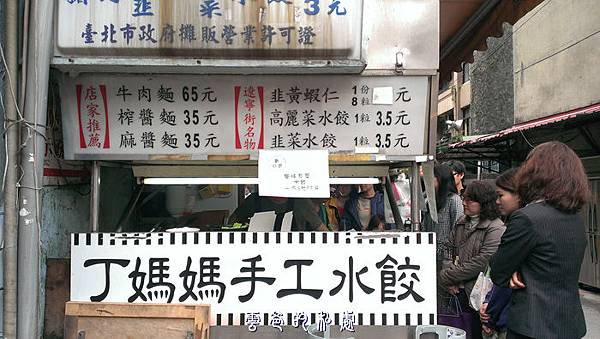 韭菜水餃 3元
臺北市政府攤販營業許可證
店家推薦
牛肉麵 65元
榨醬麵 35元
麻醬麵 35元
遼寧街名物
韭黃蝦仁 1份 8粒 元
高麗菜水餃 1粒 3.5元
韭菜水餃 1粒 3.5元
丁媽媽手工水餃
雲爸的私處